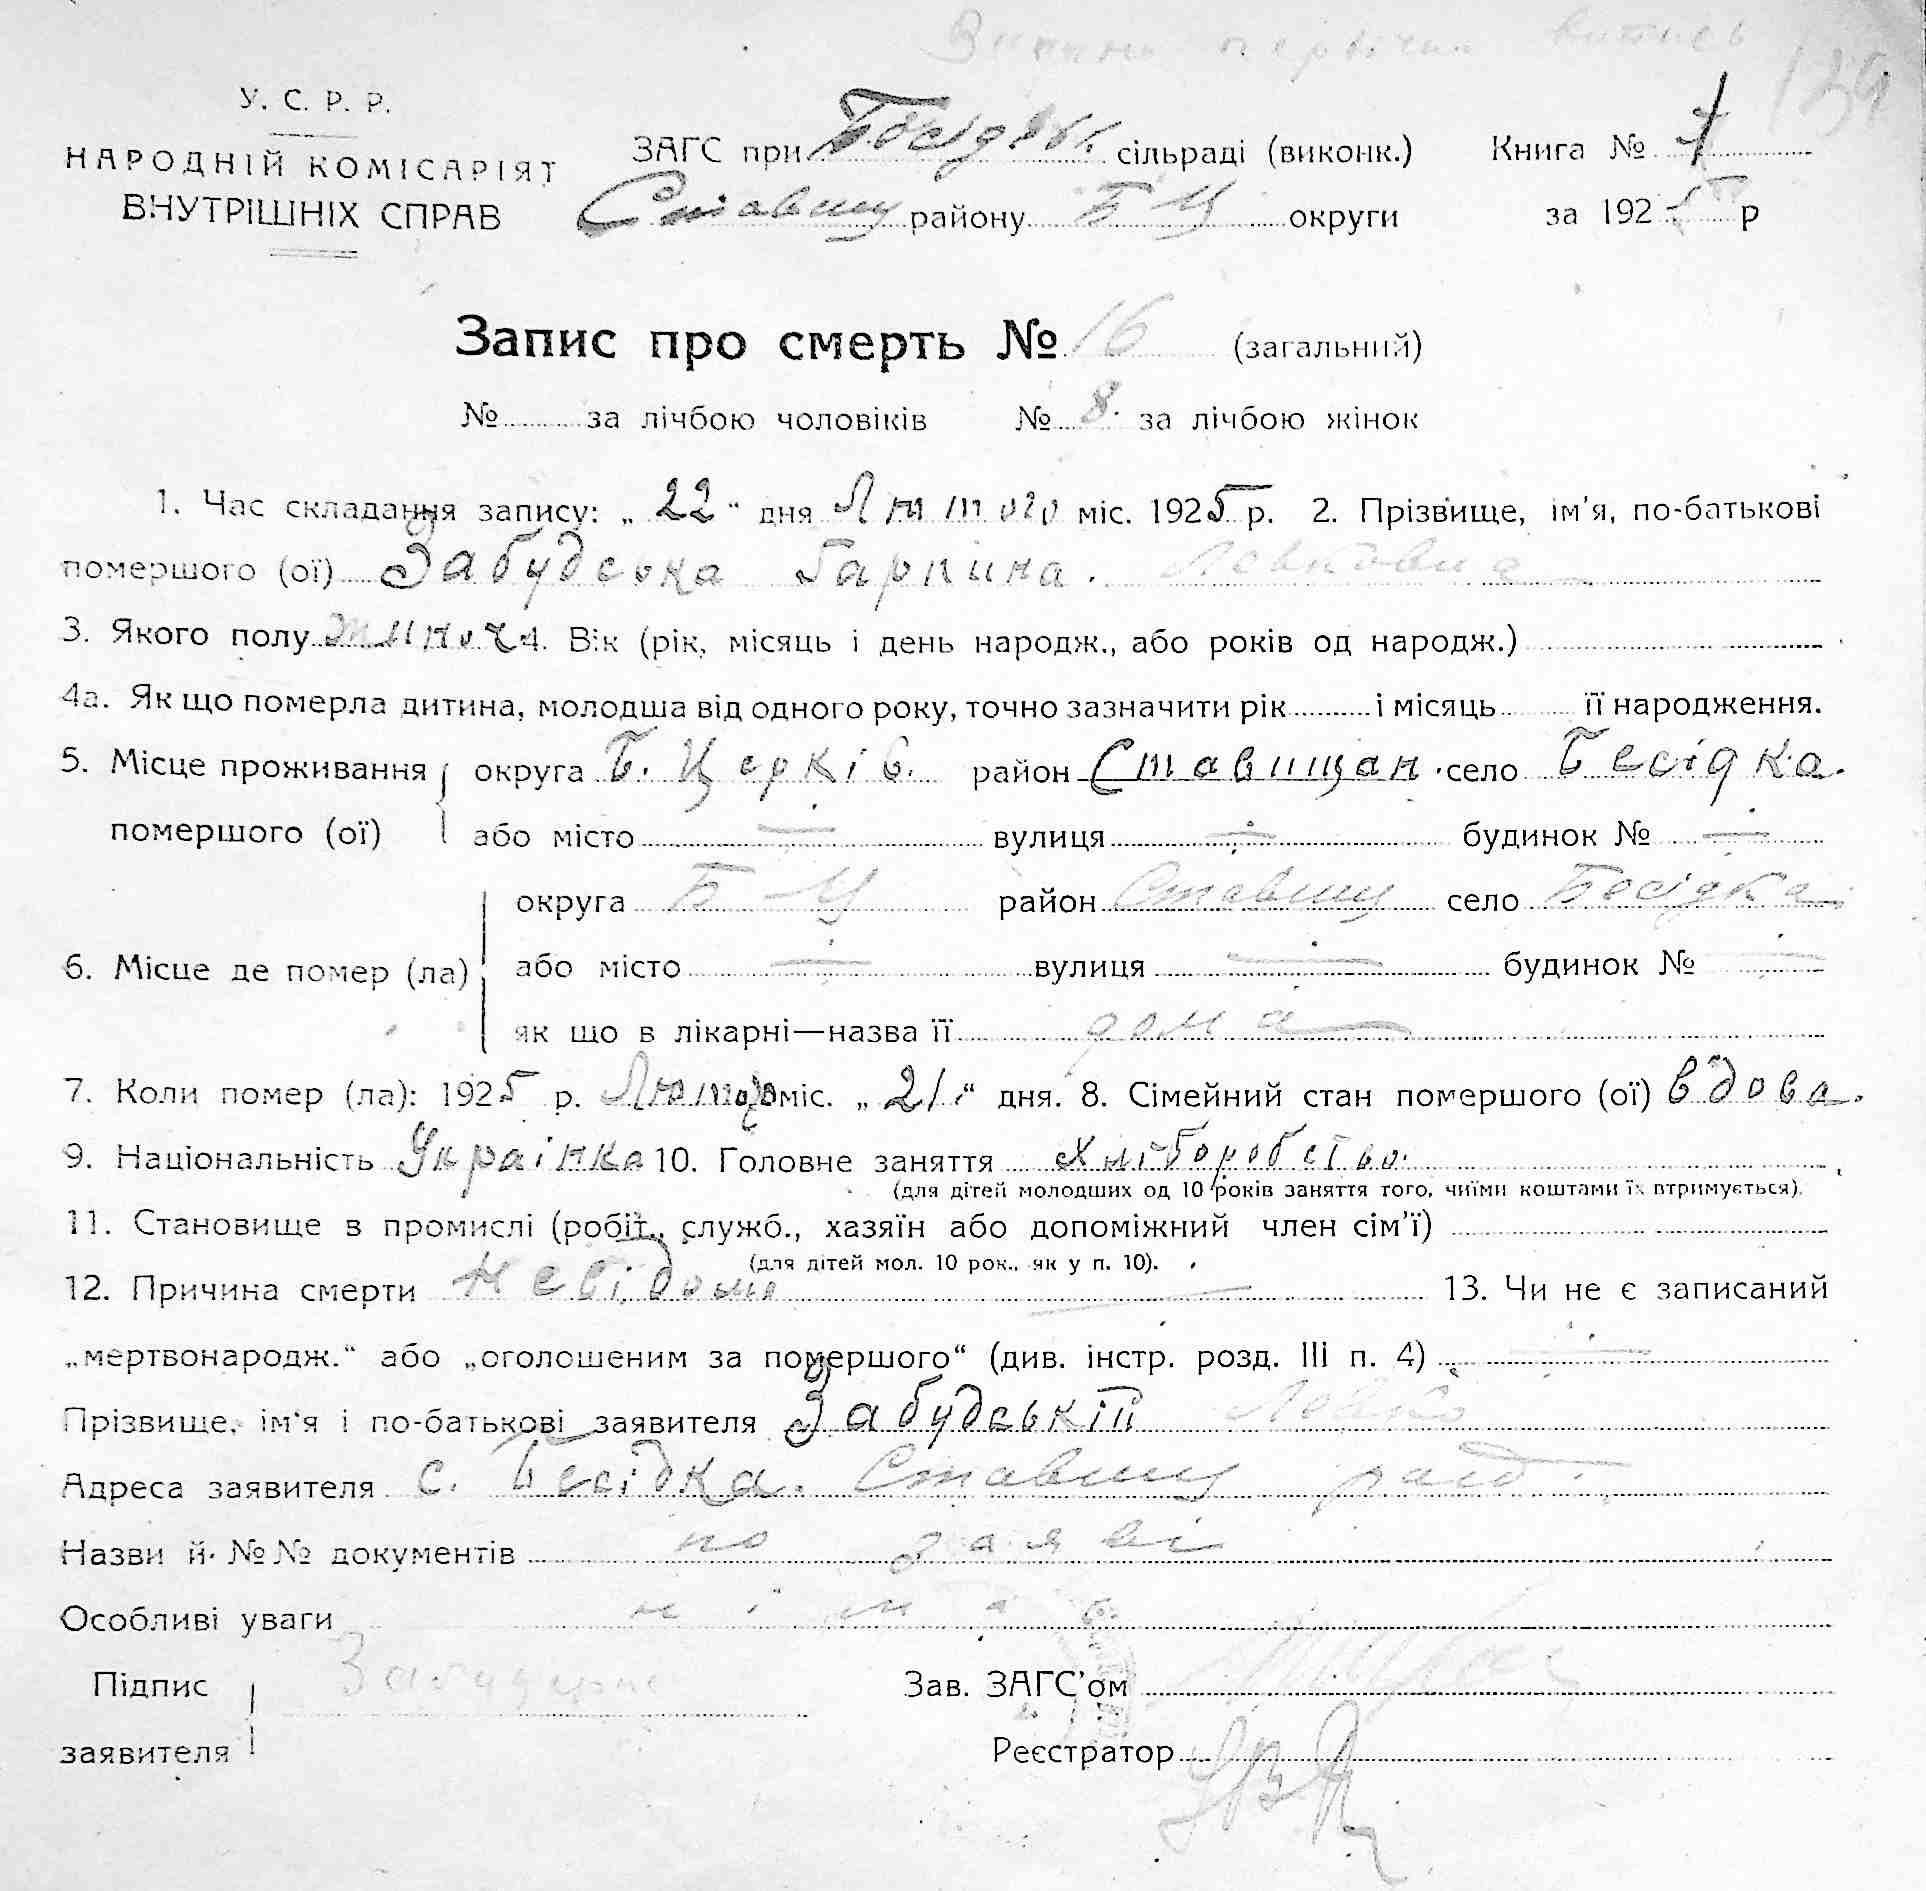 139
У. С. Р. Р.
НАРОДНІЙ КОМІСАРІЯТ
ВНУТРІШНІХ СПРАВ
ЗАГС при Бесідськ. сільраді (виконк.) Книга №
Ставищ району Б Ц округи за 1925 р
Запис про смерть № 16 (загальний)
№ за лічбою чоловіків № 8 за лічбою жінок
1. Час складання запису: „22“ дня Лютого міс. 1925 р. 2. Прізвище, ім'я, по-батькові
помершого (ої) Забудська Гарпина. Левковна
3. Якого полу жиноч 4. Вік (рік, місяць і день народж., або років од народж.)
4а. Як що померла дитина, молодша від одного року, точно зазначити рік і місяць її народження.
5. Місце проживання округа Б. Церків. район Ставищан. село Бесідка.
помершого (ої) або місто — вулиця — будинок № —
округа Б Ц район Ставищ село Бесідка
6. Місце де помер (ла) або місто — вулиця — будинок № —
як що в лікарні—назва її дома
7. Коли помер (ла): 1925 р. Лютого міс. „21“ дня. 8. Сімейний стан помершого (ої) вдова.
9. Національність Українка 10. Головне заняття хліборобство.
(для дітей молодших од 10 років заняття того, чиїми коштами їх втримується).
11. Становище в промислі (робіт., служб., хазяїн або допоміжний член сім'ї)
(для дітей мол. 10 рок., як у п. 10).
12. Причина смерти невідомо — 13. Чи не є записаний
„мертвонародж.“ або „оголошеним за помершого“ (див. інстр. розд. III п. 4) —
Прізвище, ім'я і по-батькові заявителя Забудській Левко
Адреса заявителя с. Бесідка. Ставищ
Назви й №№ документів по заяві
Особливі уваги нима
Підпис Зав. ЗАГС'ом
заявителя Реєстратор